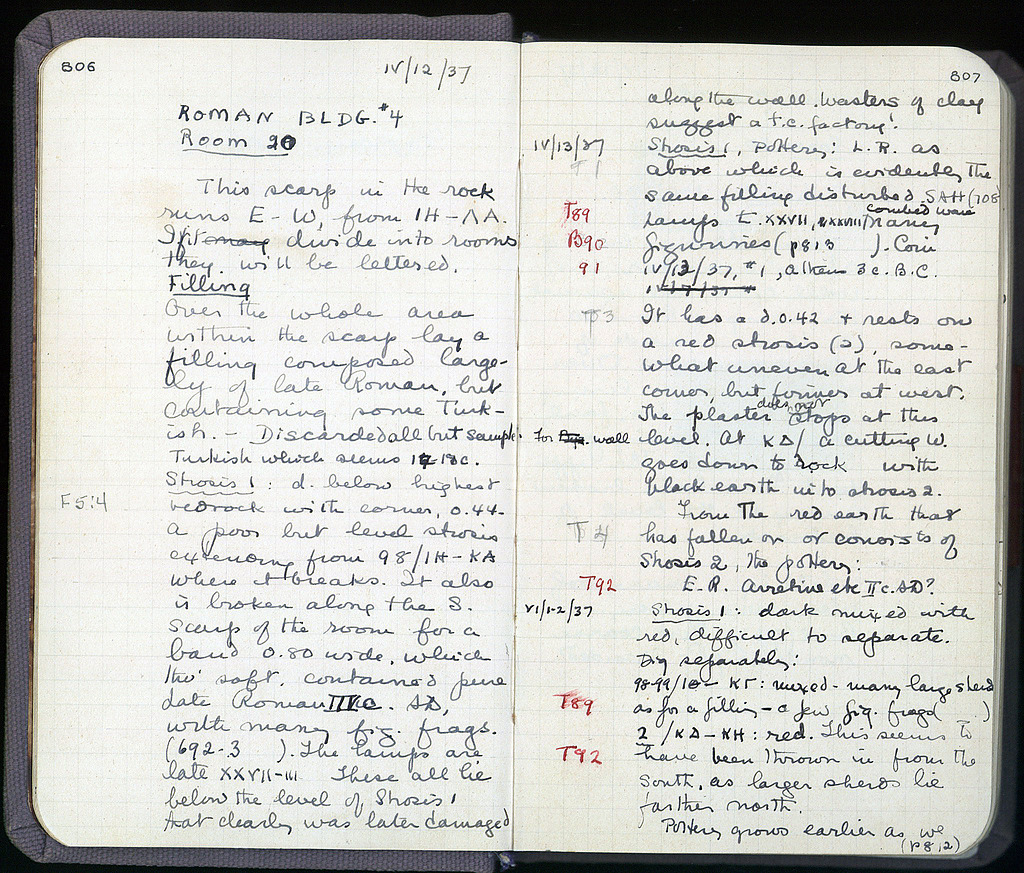 806
IV/12/37
ROMAN BLDG. #4
Room 20
This scarp in the rock
runs E-W, from IH-ΛA.
If it divide into rooms
they will be lettered.
Filling
Over the whole area
within the scarp lay a
filling composed large-
ly of late Roman, but
containing some Turk-
ish. - Discarded all but sample
Turkish which seems 18c.
F5:4
Strosis 1: d. below highest
bedrock with corner, 0.44-
a poor but level strosis
extending from 98/IH-KA
where it breaks. It also
is broken along the S.
scarp of the room for a
band 0.80 wide, which
tho' soft, contained pure
late Roman AD,
with many fig. frags.
(692-3 ). The lamps are
late XXVII-III These all lie
below the level of Strosis 1
that clearly was later damaged
807
along the wall. Wasters of clay
suggest a t.c. factory!
IV/13/37
Strosis 1, Pottery: L.R. as
T1
above which is evidently the
same filling disturbed SAH (708
T89
lamps T. XXVII, XXVIII many combed ware
B90
figurines (p813 ). Coin
91
IV/13/37, #1, Athens 3c. B.C.
IV/7/37 #
T3
It has a d. 0.42 + rests on
a red strosis (2), some-
what uneven at the east
corner, but firmer at west.
The plaster does not stops at this
For wall
level. At KΔ/ a cutting W.
goes down to rock with
black earth into strosis 2.
From the red earth that
T4
has fallen on or consists of
Strosis 2, the pottery:
T92
E.R. Arretine etc II c. AD?
VI/1-2/37
Strosis 1: dark mixed with
red, difficult to separate.
Dig separately:
98-99/IΘ- KΓ: mixed - many large sherds
T89
as for a filling - a few fig. frags( )
2 /KΔ - KH: red. This seems to
T92
have been thrown in from the
south, as larger sherds lie
farther north.
Pottery grows earlier as we
(p812)